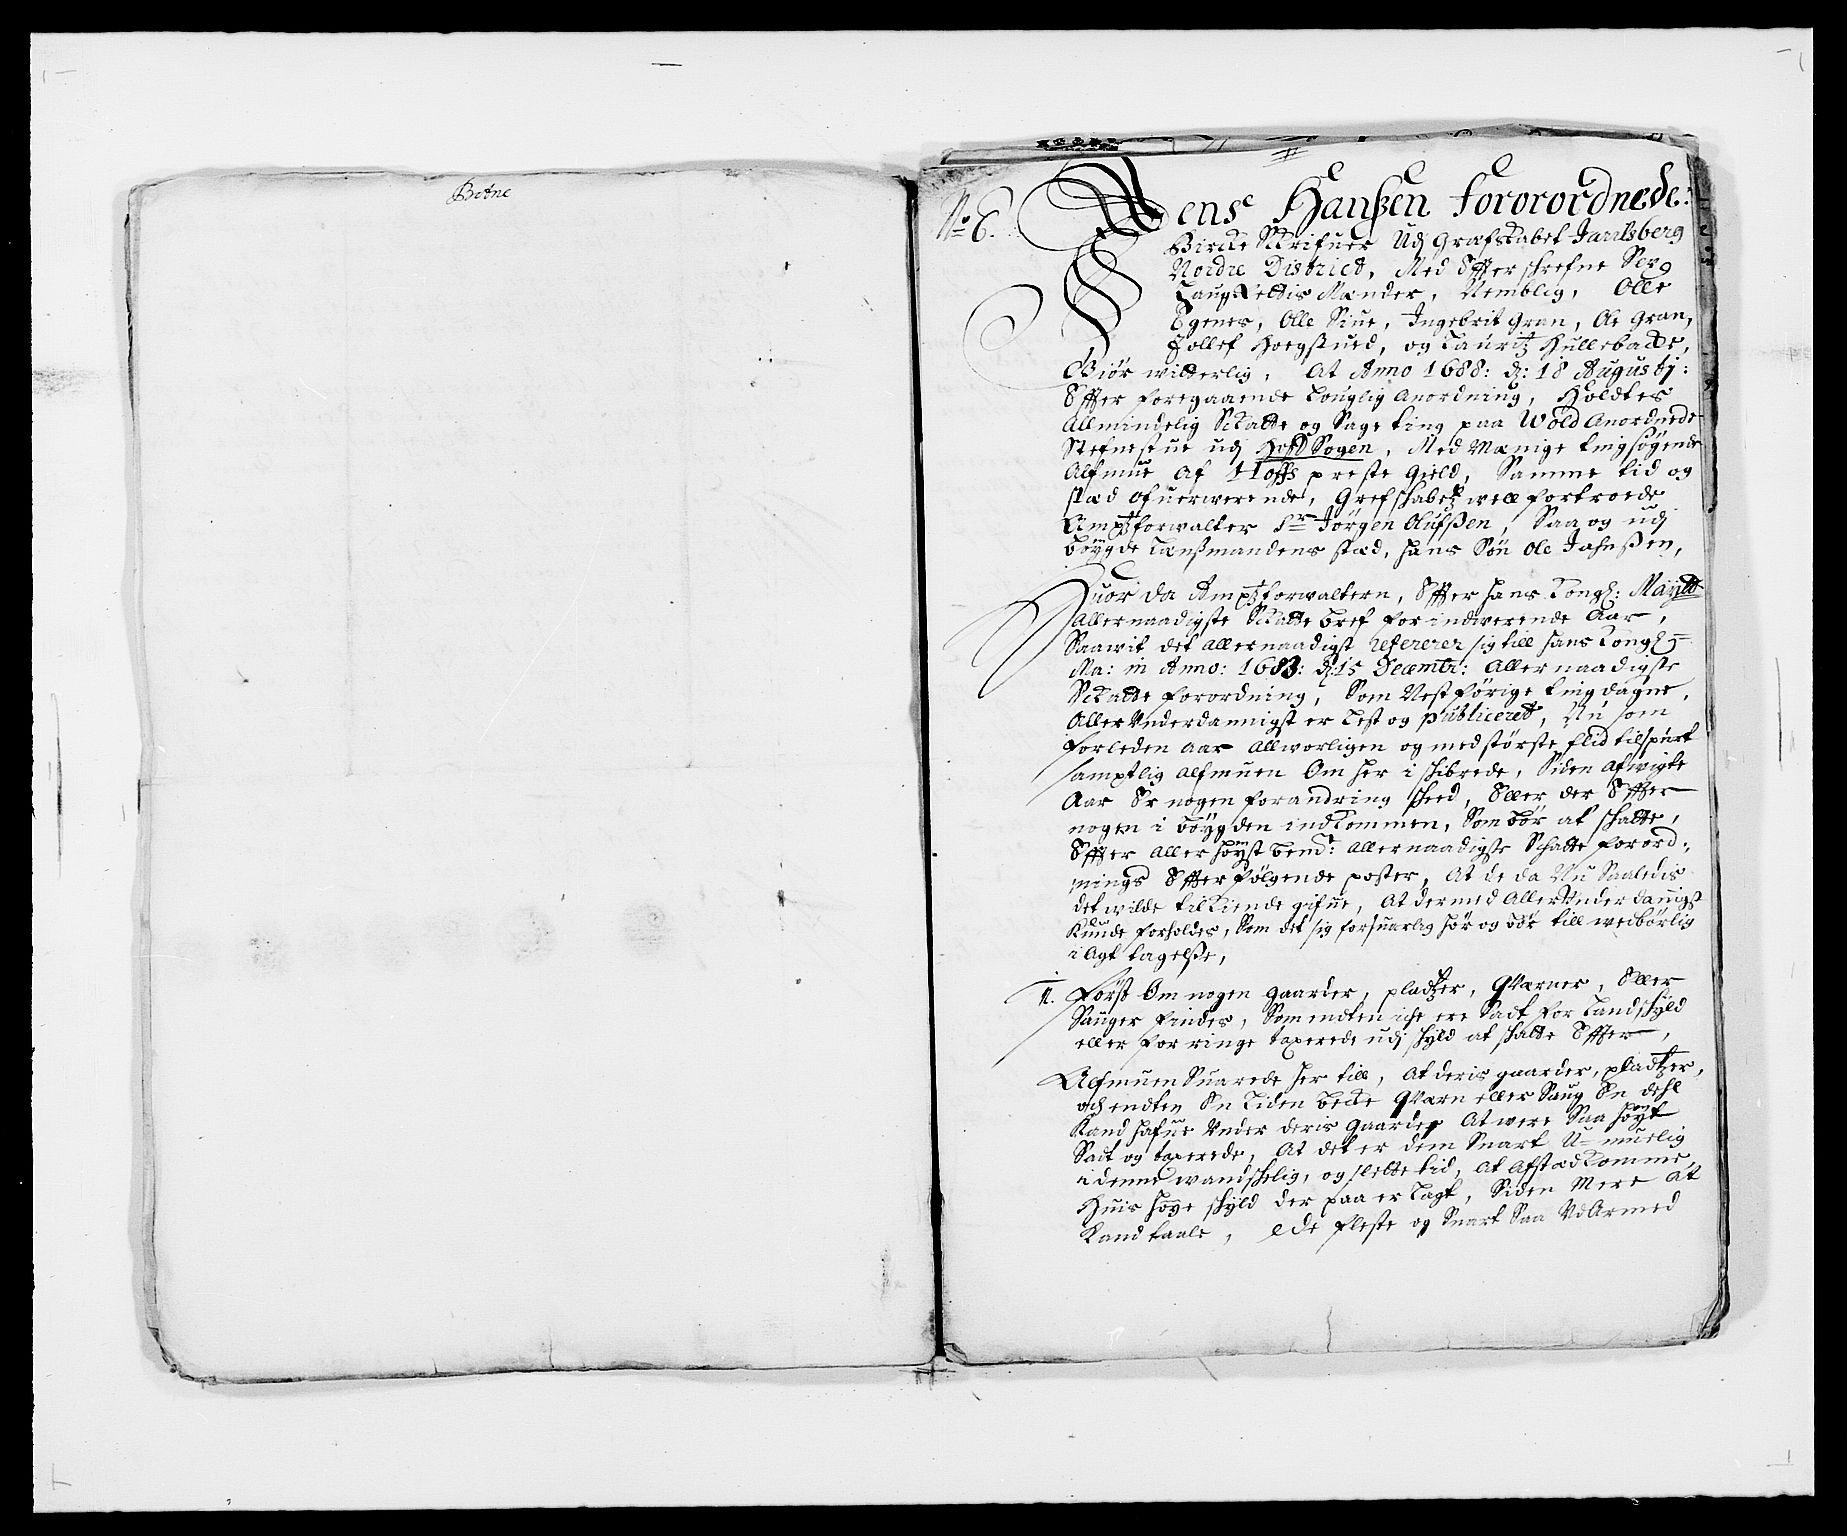 Botne
No 6.
Jens Hanßen Forordnede:
Bircke Skrifuer Udj Grafskabet Jarlsberg
Nordre District, Med Effterschrefne Sex
Laug Rettis Mænder, Nemblig, Olle
Egenes, Olle Siue, Ingebrit Gran, Ole Gran,
Jollef Hoegsrued, og Lauritz Hullebacke,
Giør witterlig, At Anno 1688: d: 18 Augustj:
Effter foregaaende Louglig anordning, Holdtes
Allmindelig Skatte og Sage ting paa Wold Anordnede
Stefnestue udj Hoff Sogen, Med Mænige tingsøgende
Almue af Hoffs preste gield, Samme tid og
stæd ofuerwerende, Grefschabetz well fortroede
Amptzforwalter Sr Jørgen Olufßen, Saa og udj
bøygde Lænßmandens stæd, hans Søn Ole Jahnßen,
Huor da Amptzforwaltern, Effter hans Kongl: Mayttz
allernaadigste Skatte bref for indwerende Aar,
Saawit det allernaadigst refererer sig till hans Kongl
Ma: in Anno: 1683: d: 15 Decembr: allernaadigste
Skatte forordning, Som Nestførige ting dagne,
Aller Underdannigst er Lest og publiceret, Nu som
forleden aar allworligen og med største flid tilspurt
samptlig almuen Om her i schibrede, Siden afwigte
Aar Er nogen forandring scheed, Eller der Effter
nogen i bøygden indkommen, Som bør at schatte,
Effter aller høyst bemt: allernaadigste Schatte forord-
nings Effterfølgende poster, At de da Nu Saaledis
det wilde tilkiende gifue, At dermed Aller Underdannigst
Kunde forholdes, Som det sig forsuarlig hør og bør till wedbørlig
i agt tagelße,
1. Først Om nogen gaarder, pladtzer, Qværner, Eller
Sauger findes, Som endten iche ere Sadt for Landschyld
eller for ringe taxerede udj schyld at schatte Effter,
Almuen Suarede her till, At deris gaarder, pladtzer,
och endten En Liden Beke Qværn eller Saug En dehl
Kand hafue Under deris gaarder At were Saa høyt
Sadt og taxerede, At det er dem Snart U-muelig
i denne wandschelig, og slette tid, at afsted komme,
Huis høye schyld der paa er Lagt, Siden Mere at
Kand taale, ede fleste og Snart Saa Udarmed